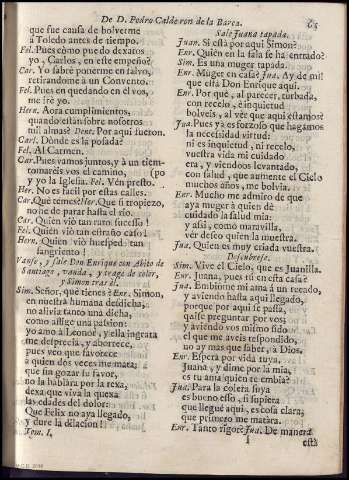 De D. Pedro Calderon de la Barca.
65
que fue causa de bolverme
à Toledo antes de tiempo.
Fel. Pues còmo puedo dexaros
yo, Carlos, en este empeño?
Car. Yo sabrè ponerme en salvo,
retirandome à un Convento.
Fel. Pues en quedando en èl vos,
me irè yo.
Hern. Aora cumplimientos,
quando estàn sobre nosotros
mil almas? Dent. Por aqui fueron.
Carl. Dònde es la posada?
Fel. Al Carmen.
Car. Pues vamos juntos, y à un tiem-
tomareis vos el camino, (po
y yo la Iglesia. Fel. Vèn presto.
Her. No es facil por estas calles.
Car. Què temes? Her. Que si tropiezo,
no he de parar hasta el rio.
Car. Quien viò tan raro sucesso!
Fel. Quien viò tan estraño caso!
Hern. Quien viò huesped tan
sangriento!
Vanse, y sale Don Enrique con Abito de
Santiago, vanda, y trage de color,
y Simon tras èl.
Sim. Señor, què tienes? Enr. Simon,
en nuestra humana desdicha,
no alivia tanto una dicha,
como aflige una passion:
yo amo à Leonor, y ella ingrata
me desprecia, y aborrece,
pues veo que favorece
à quien dos veces me mata;
que sin gozar su favor,
no la hablàra por la rexa,
dexa que viva la quexa
las edades del dolor:
Que Felix no aya llegado,
y dure la dilacion!
Tom. I.
Sale Juana tapada.
Juan. Si està por aqui Simon?
Enr. Quièn en la sala se ha entrado?
Sim. Es una muger tapada.
Enr. Muger en casa? Jua. Ay de mi!
que està Don Enrique aqui.
Enr. Por què, al parecer, turbada,
con recelo, è inquietud
bolveis, al vèr que aqui estamos?
Jua. Pues yà es forzoso que hagamos
la necessidad virtud:
ni es inquietud, ni recelo,
vuestra vida mi cuidado
era, y viendoos levantado,
con salud, que aumente el Cielo
muchos años, me bolvia.
Enr. Mucho me admiro de que
aya muger à quien dè
cuidado la salud mia:
y assi, como maravilla,
vèr desseo quien la muestra.
Jua. Quien es muy criada vuestra.
Descubrese.
Sim. Vive el Cielo, que es Juanilla.
Enr. Juana, pues tù en esta casa?
Jua. Embiòme mi ama à un recado,
y aviendo hasta aqui llegado,
porque por aqui se passa,
quise preguntar por vos;
y aviendo vos mismo sido
el que me aveis respondido,
no ay mas que saber, à Dios.
Enr. Espera por vida tuya,
Juana, y dime por la mia,
es tu ama quien te embia?
Jua. Para la colera suya
es bueno esso, si supiera
que lleguè aqui, es cosa clara,
que primero me matàra.
Enr. Tanto rigor? Jua. De manera
I
està